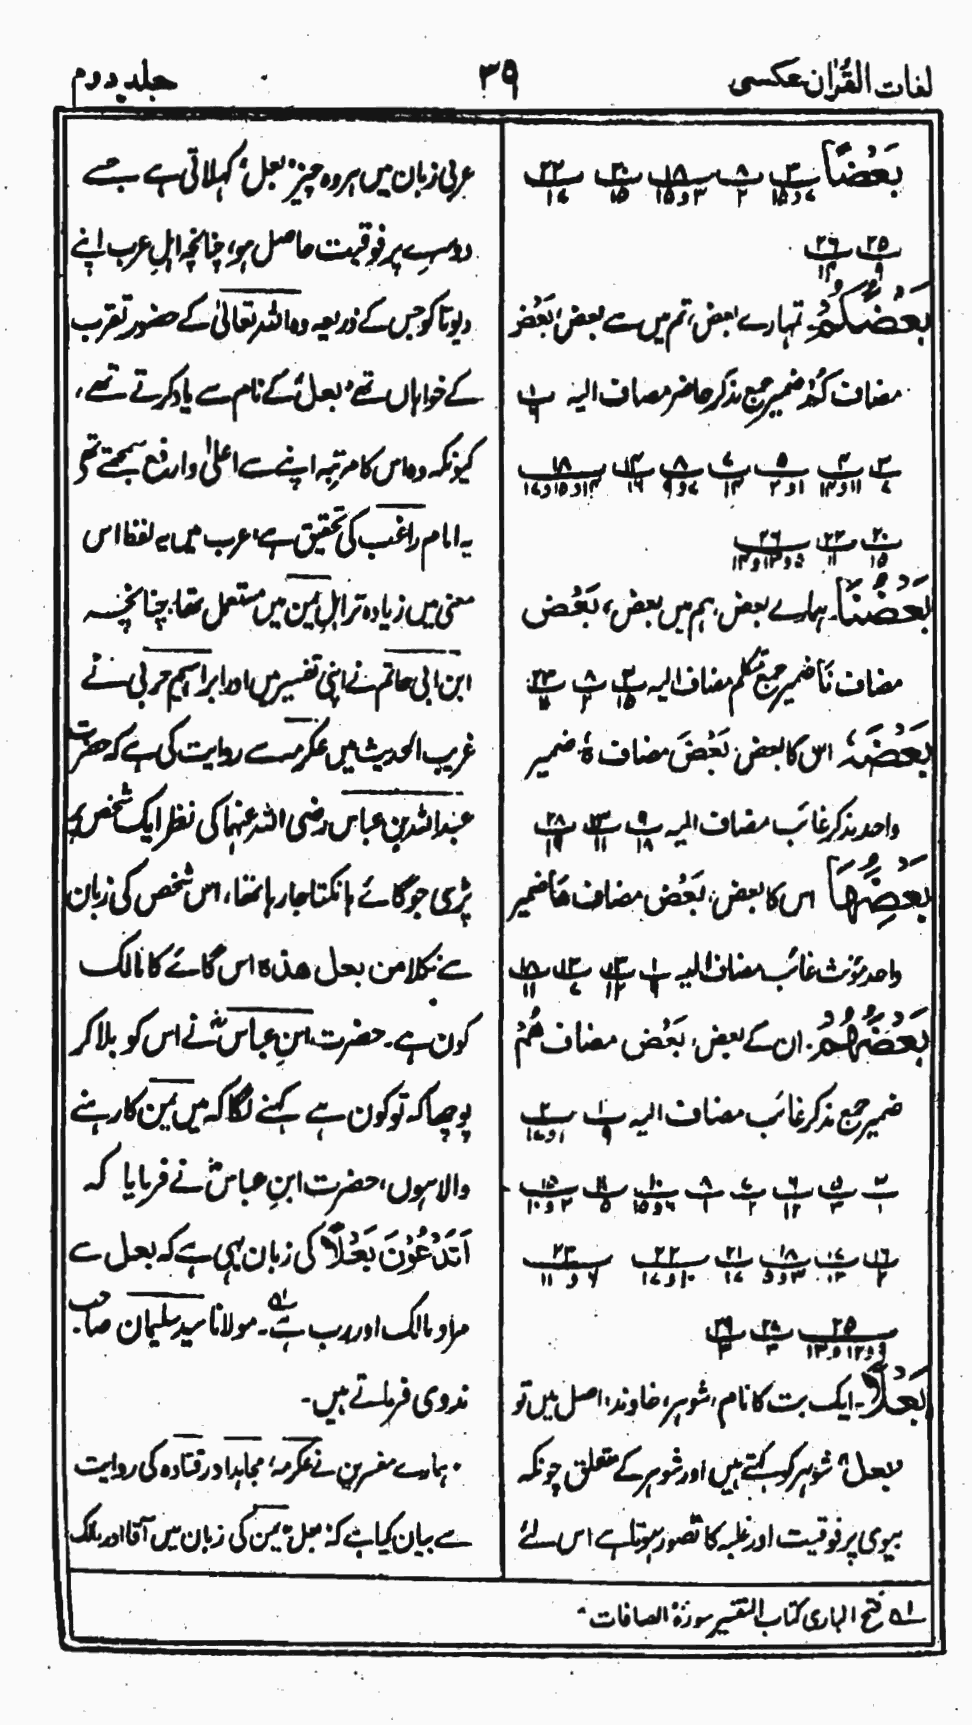 لغات القُرآن عکسی
۳۹
جلد دوم
بَعْضًا ۳/۷و۱۵ ۸/۲ ۱۸/۳و۱۵ ۲۰/۱۵ ۲۲/۱۷
۲۵/۹ ۲۶/۱۴
بَعْضُكُمْ۔ تمہارے بعض، تم میں سے بعض، بَعْضُ
مضاف کُمْ ضمیر جمع مذکر حاضر مضاف الیہ ۱/۴
۳/۷ ۴/۱۱و۱۴ ۵/۱و۲ ۷/۱۴ ۸/۷و۹ ۱۴/۱۶ ۱۸/۱۴و۱۵و۱۷
۲۰/۱۵ ۲۲/۱۱ ۲۶/۵و۱۳و۱۴
بَعْضُنَا۔ ہمارے بعض، ہم میں بعض، بَعْضُ
مضاف نَا ضمیر جمع متکلم مضاف الیہ ۳/۱۵ ۸/۲ ۲۳/۱۱
بَعْضَهٗ اس کا بعض، بَعْضَ مضاف ہٗ ضمیر
واحد مذکر غائب مضاف الیہ ۹/۱۸ ۱۳/۱۱ ۲۸/۱۹
بَعْضِهَا اس کا بعض، بَعْضُ مضاف ھَا ضمیر
واحد مؤنث غائب مضاف الیہ ۱/۹ ۱۳/۱۲ ۱۳/۷ ۱۸/۱۱
بَعْضُهُمْ۔ ان کے بعض، بَعْضُ مضاف ھُمْ
ضمیر جمع مذکر غائب مضاف الیہ ۱/۹ ۲/۱و۱۷
۳/۱ ۵/۳ ۶/۱۲ ۷/۲ ۸/۱ ۱۰/۶و۱۵ ۱۱/۵ ۱۵/۲و۱۰
۱۶/۲ ۱۷/۱۲ ۱۸/۳و۵ ۲۱/۱۷ ۲۲/۱۰و۱۷ ۲۳/۶و۱۱
۲۵/۹و۱۲و۱۳ ۲۷/۳ ۲۹/۳
بَعْلًا۔ ایک بت کا نام، شوہر، خاوند، اصل میں تو
"بعل" شوہر کو کہتے ہیں اور شوہر کے متعلق چونکہ
بیوی پر فوقیت اور غلبہ کا تصور ہوتا ہے اس لئے
عربی زبان میں ہر وہ چیز "بعل" کہلاتی ہے جسے
دوسرے پر فوقیت حاصل ہو، چنانچہ اہلِ عرب اپنے
دیوتا کو جس کے ذریعہ وہ اللہ تعالیٰ کے حضور تقرب
کے خواہاں تھے "بعل" کے نام سے یاد کرتے تھے،
کیونکہ وہ اس کا مرتبہ اپنے سے اعلیٰ و ارفع سمجھتے تھے
یہ امام راغب کی تحقیق ہے، عرب میں یہ لفظ اس
معنی میں زیادہ تر اہلِ یمن میں مستعمل تھا، چنانچہ
ابن ابی حاتم نے اپنی تفسیر میں اور ابراہیم حربی نے
غریب الحدیث میں عکرمہ سے روایت کی ہے کہ حضرت
عبداللہ بن عباس رضی اللہ عنہما کی نظر ایک شخص پر
پڑی جو گائے ہانکتا جا رہا تھا، اس شخص کی زبان
سے نکلا من بعل ھذہ اس گائے کا مالک
کون ہے۔ حضرت ابنِ عباسؓ نے اس کو بلا کر
پوچھا کہ تو کون ہے کہنے لگا کہ میں یمن کا رہنے
والا ہوں، حضرت ابنِ عباسؓ نے فرمایا کہ
اَتَدْعُوْنَ بَعْلًا کی زبان یہی ہے کہ بعل سے
مراد مالک اور رب ہے ۱؎۔ مولانا سید سلیمان صاحب
ندوی فرماتے ہیں۔
"ہمارے مفسرین نے عکرمہ، مجاہد اور قتادہ کی روایت
سے بیان کیا ہے کہ "بعل" یمن کی زبان میں آقا اور مالک
۱؎ فتح الباری کتاب التفسیر سورۃ الصافات۔